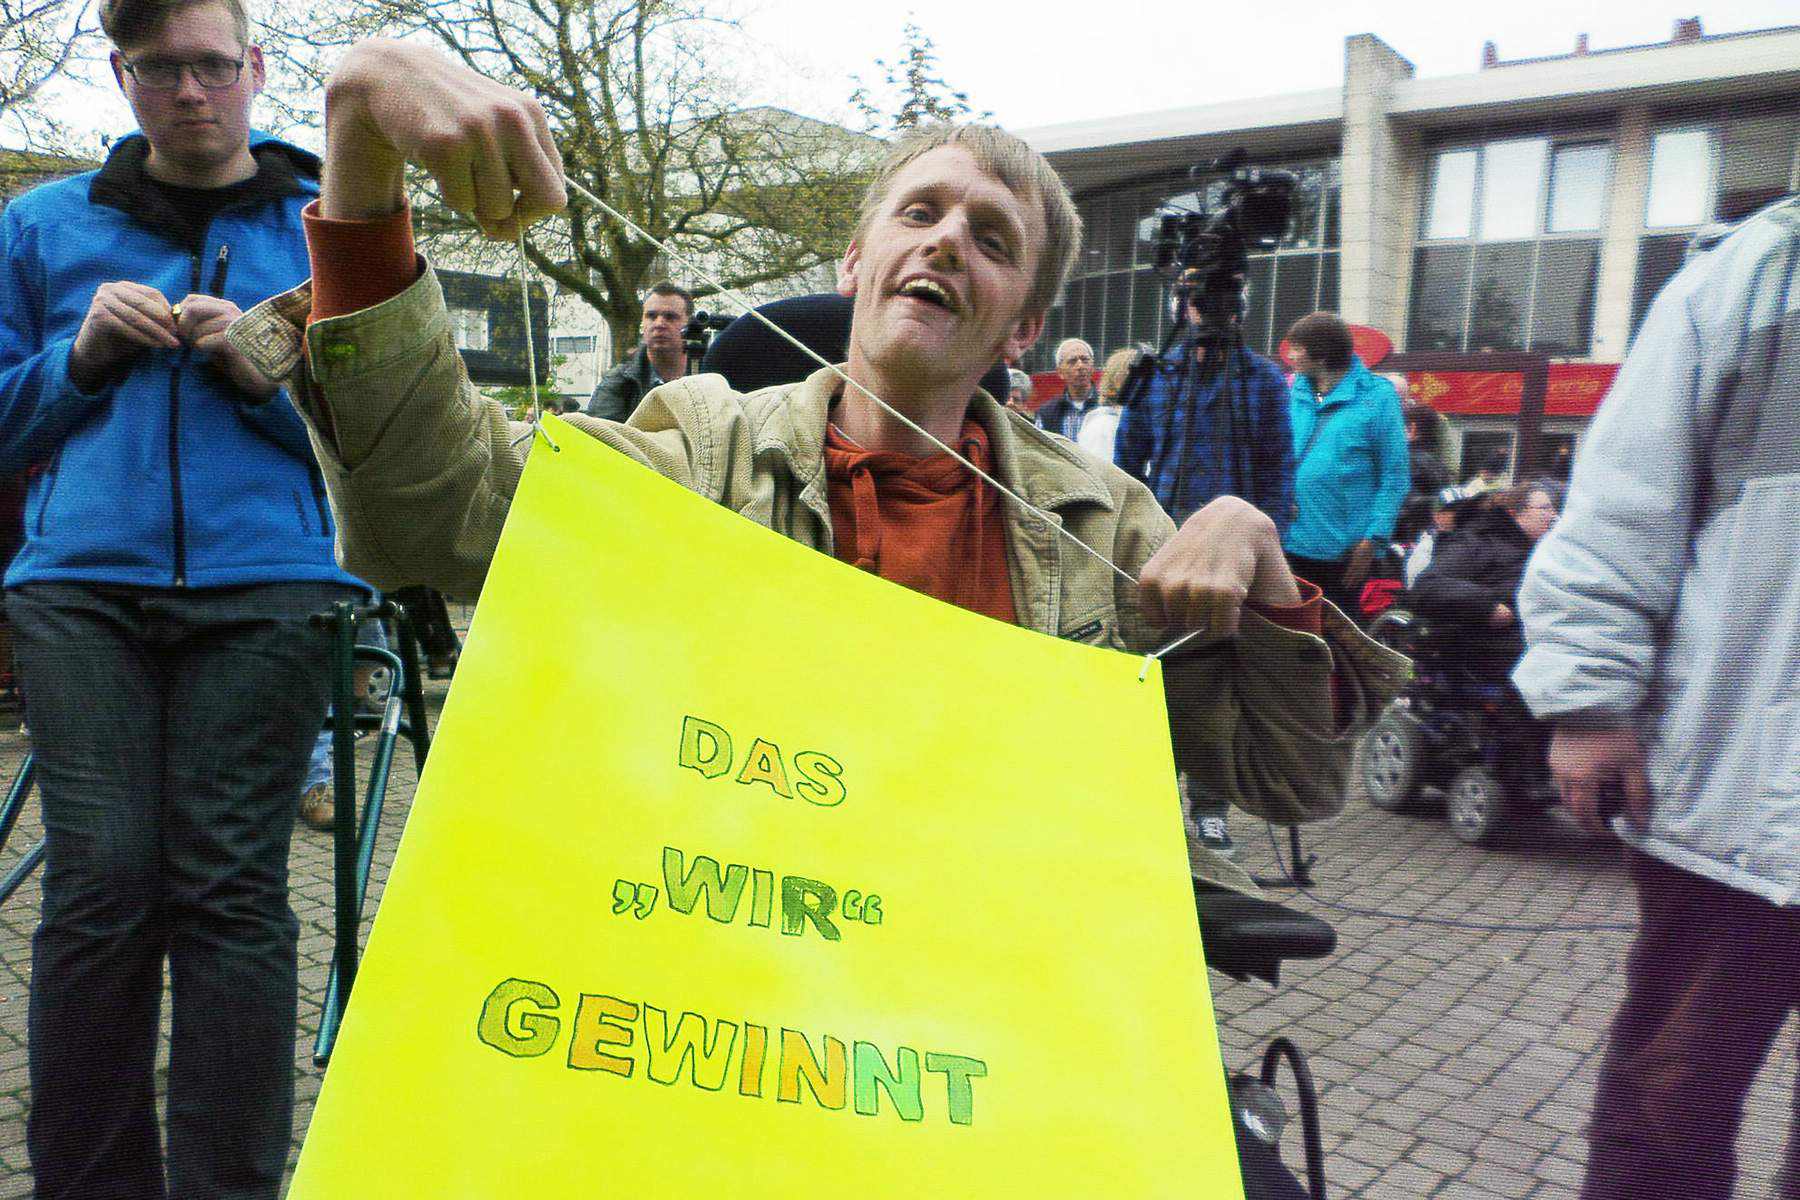 DAS
„WIR“
GEWINNT